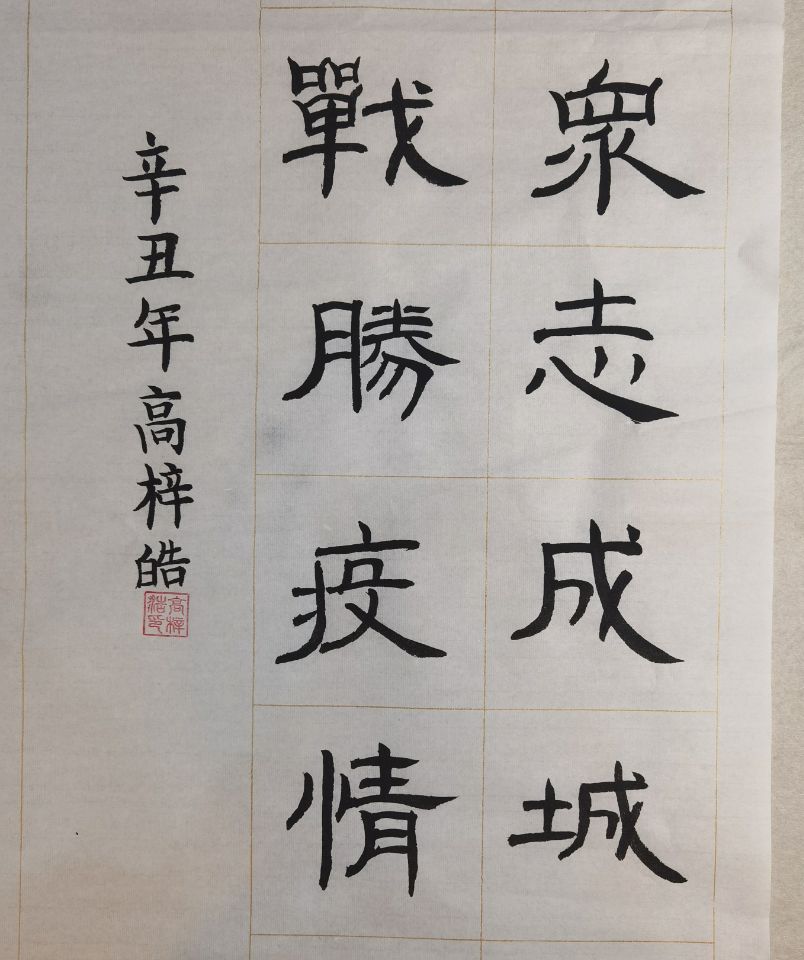 眾志成城
戰勝疫情
辛丑年高梓皓
高梓
浩印